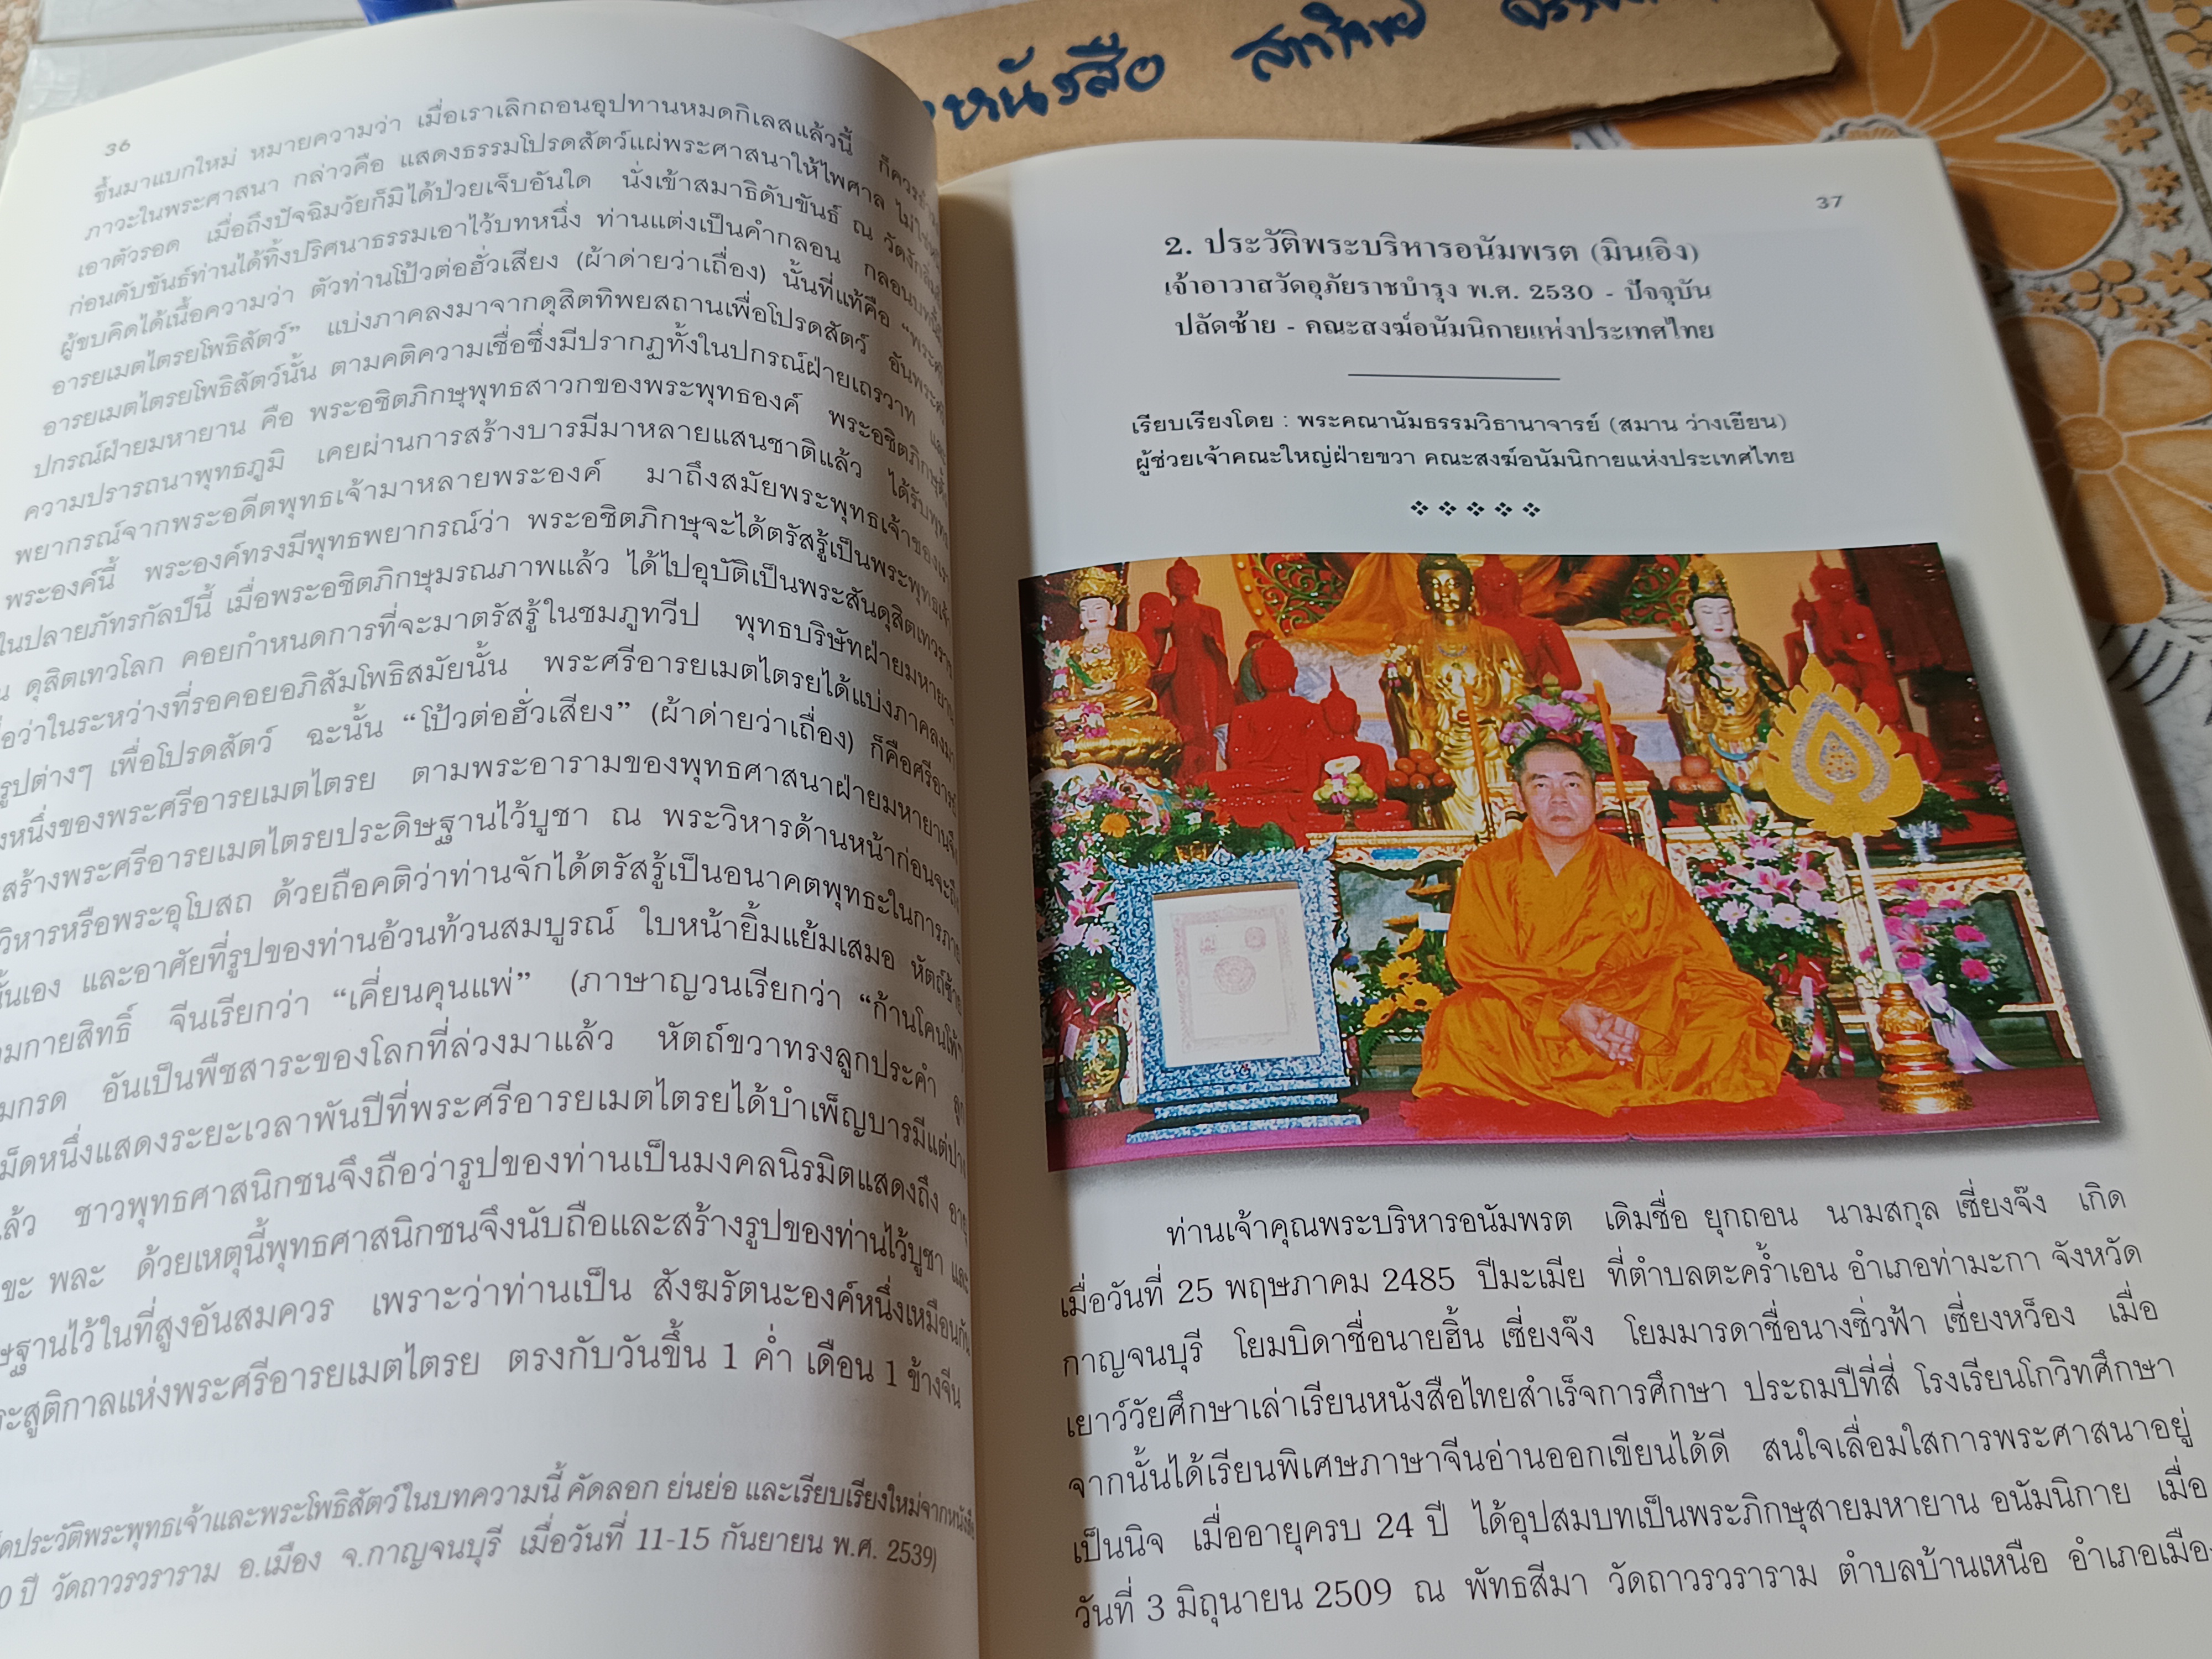 หนังสือ
36
ขึ้นมาแบกใหม่ หมายความว่า เมื่อเราเลิกถอนอุปทานหมดกิเลสแล้วนี้
ภาวะในพระศาสนา กล่าวคือ แสดงธรรมโปรดสัตว์แผ่พระศาสนาให้ไพศาล
เอาตัวรอด เมื่อถึงปัจฉิมวัยก็มิได้ป่วยเจ็บอันใด นั่งเข้าสมาธิดับขันธ์ ณ
ก่อนดับขันธ์ท่านได้ทิ้งปริศนาธรรมเอาไว้บทหนึ่ง ท่านแต่งเป็นคำกลอน
ผู้ขบคิดได้เนื้อความว่า ตัวท่านโป้วต่อฮั่วเสียง (ผ้าด่ายว่าเถื่อง) นั้นที่แท้คือ
อารยเมตไตรยโพธิสัตว์” แบ่งภาคลงมาจากดุสิตทิพยสถานเพื่อโปรดสัตว์
อารยเมตไตรยโพธิสัตว์นั้น ตามคติความเชื่อซึ่งมีปรากฏทั้งในปกรณ์ฝ่ายเถรวาท และ
ปกรณ์ฝ่ายมหายาน คือ พระอชิตภิกษุพุทธสาวกของพระพุทธองค์
ความปรารถนาพุทธภูมิ เคยผ่านการสร้างบารมีมาหลายแสนชาติแล้ว
พยากรณ์จากพระอดีตพุทธเจ้ามาหลายพระองค์ มาถึงสมัยพระพุทธเจ้าของเรา
พระองค์นี้ พระองค์ทรงมีพุทธพยากรณ์ว่า พระอชิตภิกษุจะได้ตรัสรู้เป็นพระพุทธเจ้า
ในปลายภัทรกัลป์นี้ เมื่อพระอชิตภิกษุมรณภาพแล้ว ได้ไปอุบัติเป็นพระสันดุสิตเทวราช
ดุสิตเทวโลก คอยกำหนดการที่จะมาตรัสรู้ในชมภูทวีป พุทธบริษัทฝ่ายมหายาน
ว่าในระหว่างที่รอคอยอภิสัมโพธิสมัยนั้น พระศรีอารยเมตไตรยได้แบ่งภาคลงมา
รูปต่างๆ เพื่อโปรดสัตว์ ฉะนั้น “โป้วต่อฮั่วเสียง” (ผ้าด่ายว่าเถื่อง) ก็คือ
หนึ่งของพระศรีอารยเมตไตรย ตามพระอารามของพุทธศาสนาฝ่ายมหายานจึง
สร้างพระศรีอารยเมตไตรยประดิษฐานไว้บูชา ณ พระวิหารด้านหน้าก่อนจะถึง
วิหารหรือพระอุโบสถ ด้วยถือคติว่าท่านจักได้ตรัสรู้เป็นอนาคตพุทธะในการภาย
และอาศัยที่รูปของท่านอ้วนท้วนสมบูรณ์ ใบหน้ายิ้มแย้มเสมอ หัตถ์ซ้าย
จีนเรียกว่า “เคี่ยนคุนแพ่” (ภาษาญวนเรียกว่า “ก้านโคนโต้”)
อันเป็นพืชสาระของโลกที่ล่วงมาแล้ว หัตถ์ขวาทรงลูกประคำ
หนึ่งแสดงระยะเวลาพันปีที่พระศรีอารยเมตไตรยได้บำเพ็ญบารมีแต่ปาง
ชาวพุทธศาสนิกชนจึงถือว่ารูปของท่านเป็นมงคลนิรมิตแสดงถึง อายุ
พละ ด้วยเหตุนี้พุทธศาสนิกชนจึงนับถือและสร้างรูปของท่านไว้บูชา และ
ไว้ในที่สูงอันสมควร เพราะว่าท่านเป็น สังฆรัตนะองค์หนึ่งเหมือนกัน
แห่งพระศรีอารยเมตไตรย ตรงกับวันขึ้น 1 ค่ำ เดือน 1 ข้างจีน
ประวัติพระพุทธเจ้าและพระโพธิสัตว์ในบทความนี้ คัดลอก ย่นย่อ และเรียบเรียงใหม่จากหนังสือ
ปี วัดถาวรวราราม อ.เมือง จ.กาญจนบุรี เมื่อวันที่ 11-15 กันยายน พ.ศ. 2539)
37
2. ประวัติพระบริหารอนัมพรต (มินเอิง)
เจ้าอาวาสวัดอุภัยราชบำรุง พ.ศ. 2530 - ปัจจุบัน
ปลัดซ้าย - คณะสงฆ์อนัมนิกายแห่งประเทศไทย
เรียบเรียงโดย : พระคณานัมธรรมวิธานาจารย์ (สมาน ว่างเยียน)
ผู้ช่วยเจ้าคณะใหญ่ฝ่ายขวา คณะสงฆ์อนัมนิกายแห่งประเทศไทย
ท่านเจ้าคุณพระบริหารอนัมพรต เดิมชื่อ ยุกถอน นามสกุล เซี่ยงจ๊ง เกิด
เมื่อวันที่ 25 พฤษภาคม 2485 ปีมะเมีย ที่ตำบลตะคร้ำเอน อำเภอท่ามะกา จังหวัด
กาญจนบุรี โยมบิดาชื่อนายฮิ้น เซี่ยงจ๊ง โยมมารดาชื่อนางซิ่วฟ้า เซี่ยงหว็อง เมื่อ
เยาว์วัยศึกษาเล่าเรียนหนังสือไทยสำเร็จการศึกษา ประถมปีที่สี่ โรงเรียนโกวิทศึกษา
จากนั้นได้เรียนพิเศษภาษาจีนอ่านออกเขียนได้ดี สนใจเลื่อมใสการพระศาสนาอยู่
เป็นนิจ เมื่ออายุครบ 24 ปี ได้อุปสมบทเป็นพระภิกษุสายมหายาน อนัมนิกาย เมื่อ
วันที่ 3 มิถุนายน 2509 ณ พัทธสีมา วัดถาวรวราราม ตำบลบ้านเหนือ อำเภอเมือง